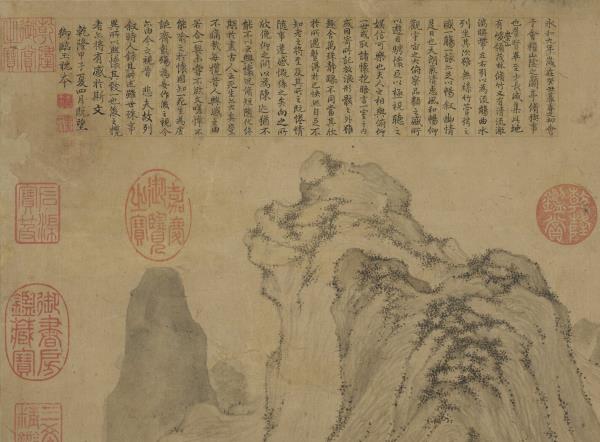 永和九年歲在癸丑暮春之初會
于會稽山陰之蘭亭脩禊事
也羣賢畢至少長咸集此地
有崇山峻領茂林脩竹又有清流激
湍暎帶左右引以爲流觴曲水
列坐其次雖無絲竹管弦之
盛一觴一詠亦足以暢叙幽情
是日也天朗氣清惠風和暢仰
觀宇宙之大俯察品類之盛所
以遊目騁懷足以極視聽之
娛信可樂也夫人之相與俯仰
一世或取諸懷抱悟言一室之內
或因寄所託放浪形骸之外雖
趣舍萬殊靜躁不同當其欣
於所遇蹔得於己快然自足不
知老之將至及其所之既惓情
隨事遷感慨係之矣向之所
欣俛仰之間以爲陳迹猶不
能不以之興懷況脩短隨化終
期於盡古人云死生亦大矣豈
不痛哉每攬昔人興感之由
若合一契未嘗不臨文嗟悼不
能喻之於懷固知一死生爲虛
誕齊彭殤爲妄作後之視今
亦由今之視昔 悲夫故列
叙時人錄其所述雖世殊事
異所以興懷其致一也後之攬
者亦將有感於斯文
乾隆甲子夏四月既望
御臨玉枕本
乾隆鑑賞
嘉慶御覽之寶
石渠寶笈
御書房鑑藏寶